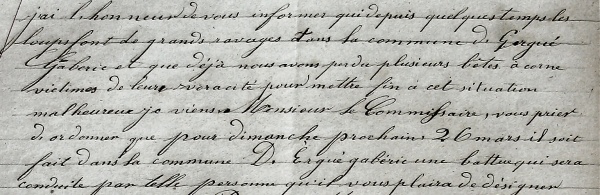 j'ai l'honneur de vous informer qui depuis quelques temps les
loups font de grands ravages dans la commune d'Ergué
Gabéric et que déjà nous avons perdu plusieurs bêtes à corne
victimes de leur voracité pour mettre fin à cet situation
malheureux je viens Monsieur le Commissaire, vous prier
di ordonner que pour dimanche prochain 26 mars il soit
fait dans la commune D. Ergué gabéric une battue qui sera
conduite par telle personne qu'il vous plaira de désigner